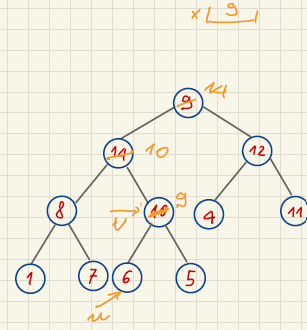 x 9
9 14
14 10 12
8 v 10 9 4 11
1 7 6 5
u